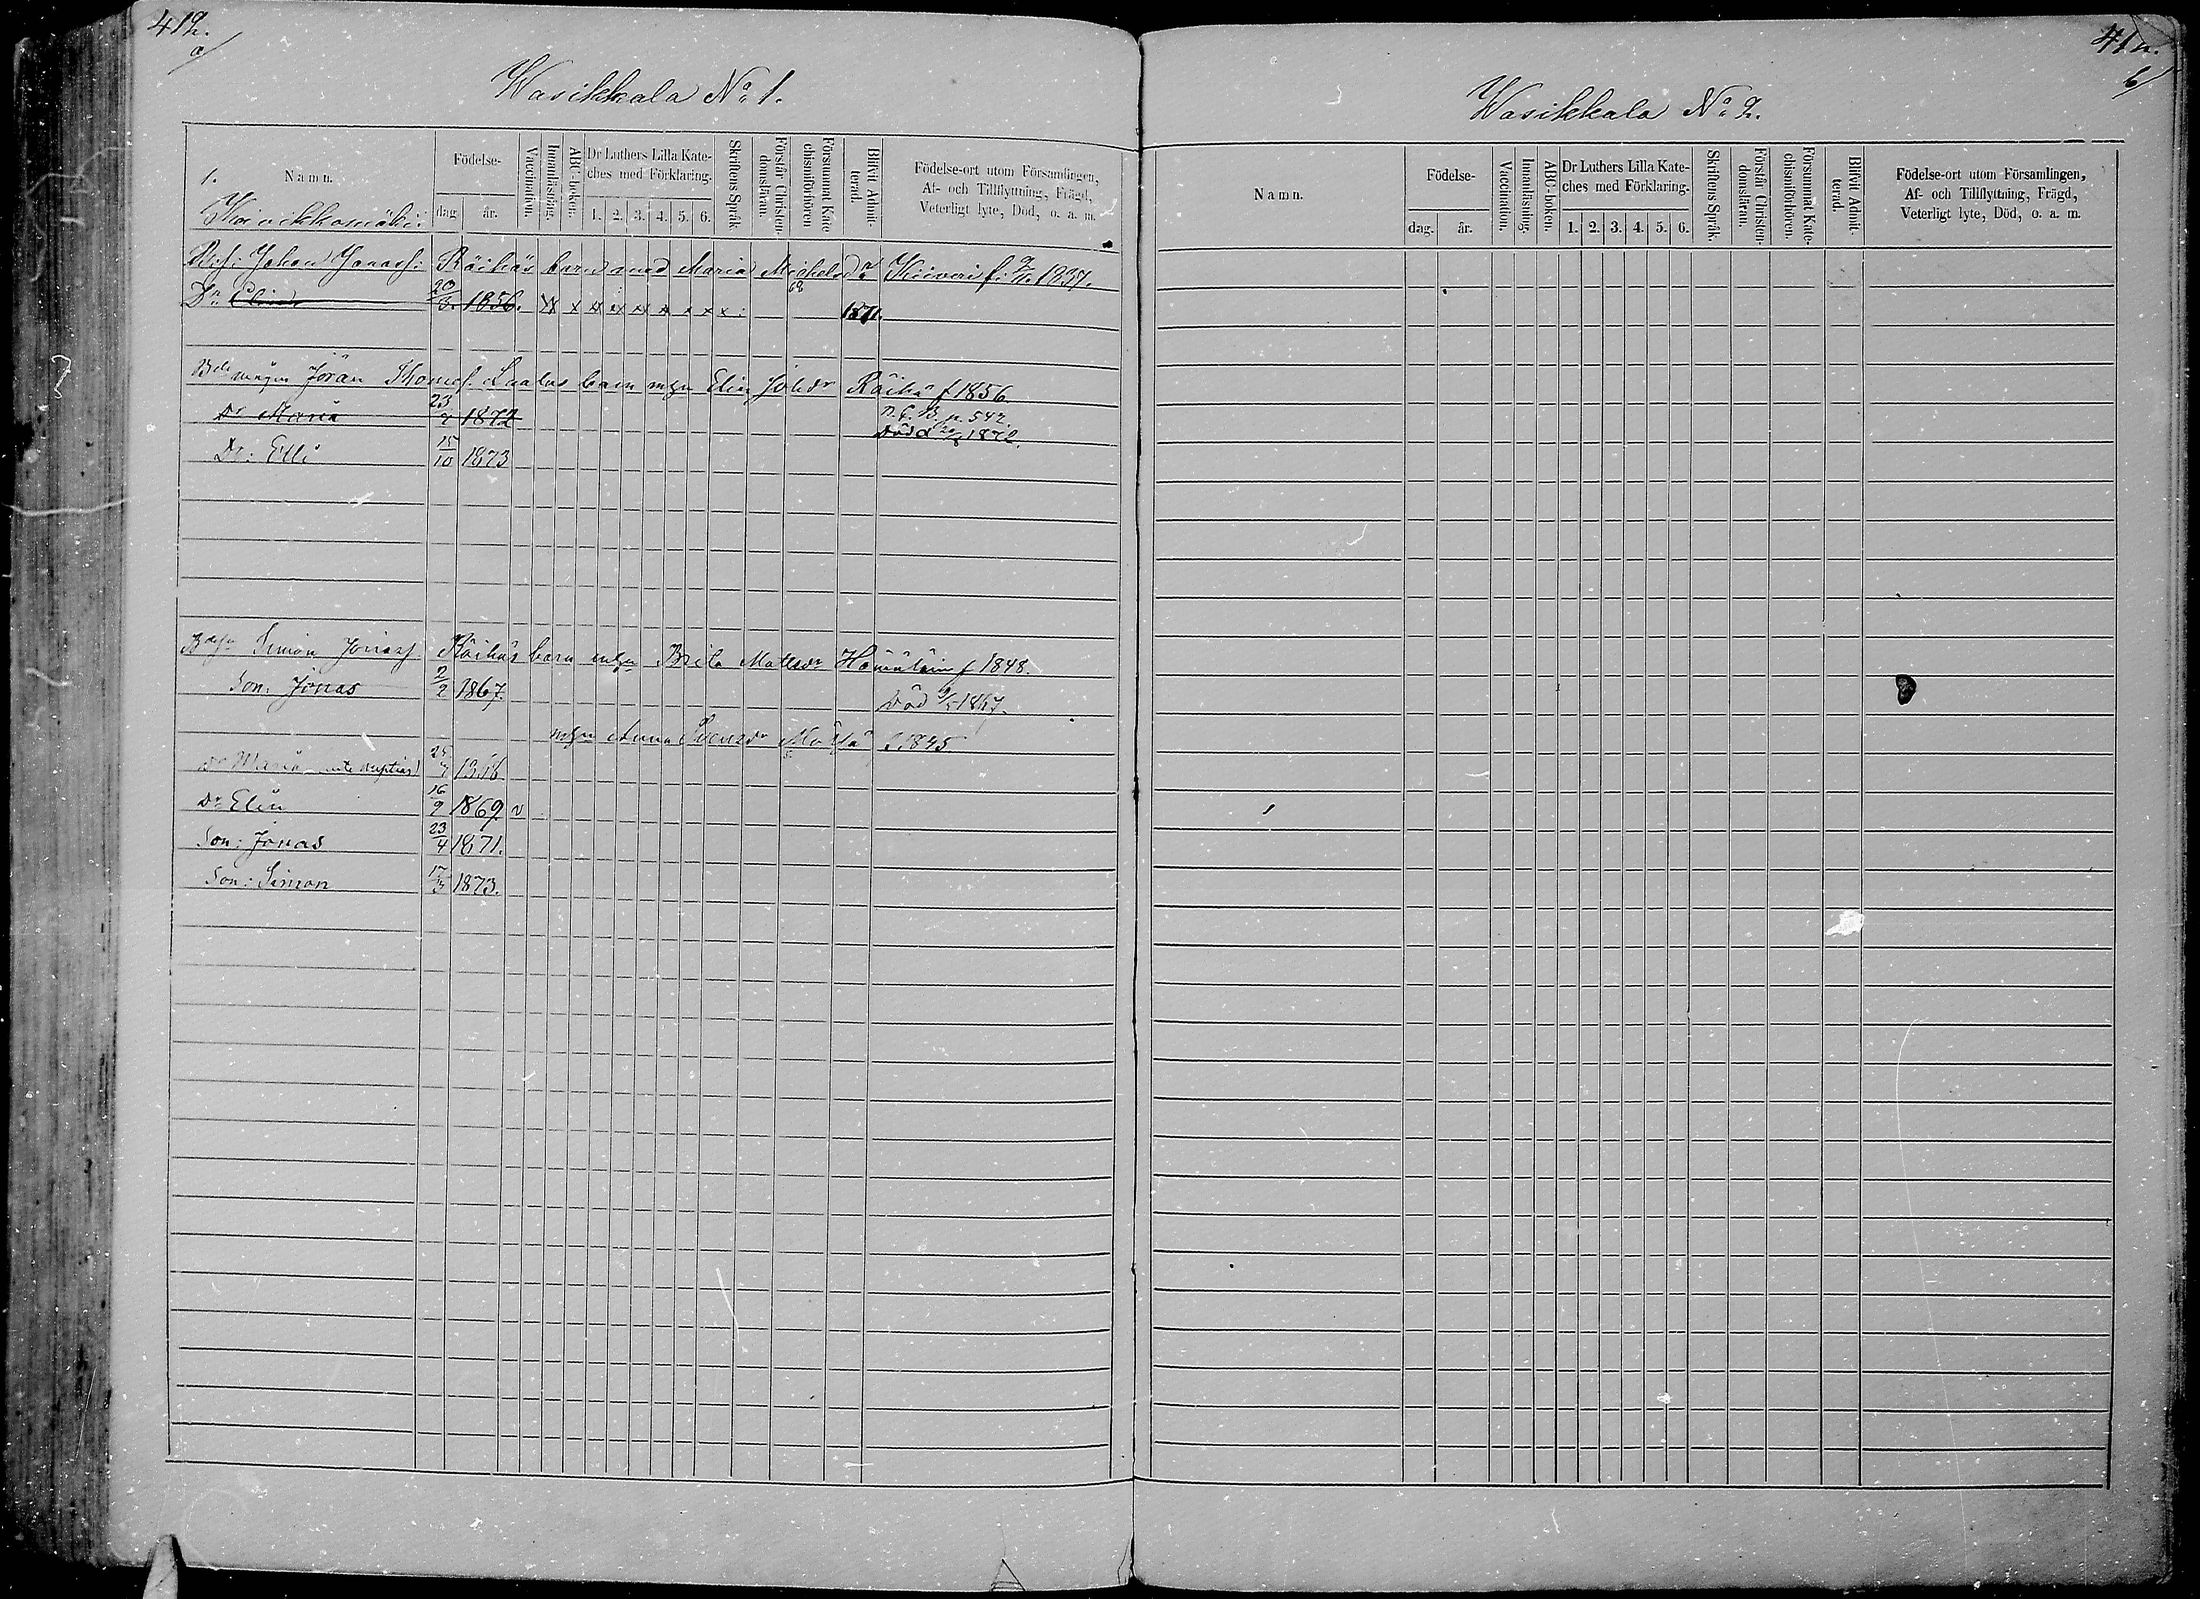 412.
a/
Wasikkala No 1.
1.
Namn.
Födelse-
dag
år.
Vaccination.
Innanläsning.
ABC-boken.
Dr Luthers Lilla Kate-
ches med Förklaring.
1. 2. 3. 4. 5. 6.
Skriftens Språk
Förstår Christen-
domsläran.
Försummat Kate-
chismiförhören
Blifvit Admit-
terad.
Födelse-ort utom Församlingen,
Af- och Tillflyttning, Frägd,
Veterligt lyte, Död, o. a. m.
Johan Räihäs barn med Maria Michelsd:r Kiiveri f. 1837.
Dr Elin 20/3. 1856. x x x x x x x x x 68 1871.
mågen Jöran Thomas. Laalus barn m hu Elin Johdr Räihä f 1856
n. C. B. p. 542.
Dr Maria 23/7 1872 Död 1872.
Dr: Elli 15/10 1873
Simon Jonass. Räihäs barn m hu Brita Mattsdr f 1848.
Son. Jonas 2/2 1867. Död 1867.
m hu Anna f 1845
Dr Maria 25/7
Dr Elin 16/9 1869 v
Son: Jonas 23/4 1871.
Son: Simon 17/3 1873.
b/
Wasikkala No 2.
Namn.
Födelse-
dag.
år.
Vaccination.
Innanläsning.
ABC-boken.
Dr Luthers Lilla Kate-
ches med Förklaring.
1. 2. 3. 4. 5. 6.
Skriftens Språk.
Förstår Christen-
domsläran.
Försummat Kate-
chismiförhören.
Blifvit Admit-
terad.
Födelse-ort utom Församlingen,
Af- och Tillflyttning, Frägd,
Veterligt lyte, Död, o. a. m.